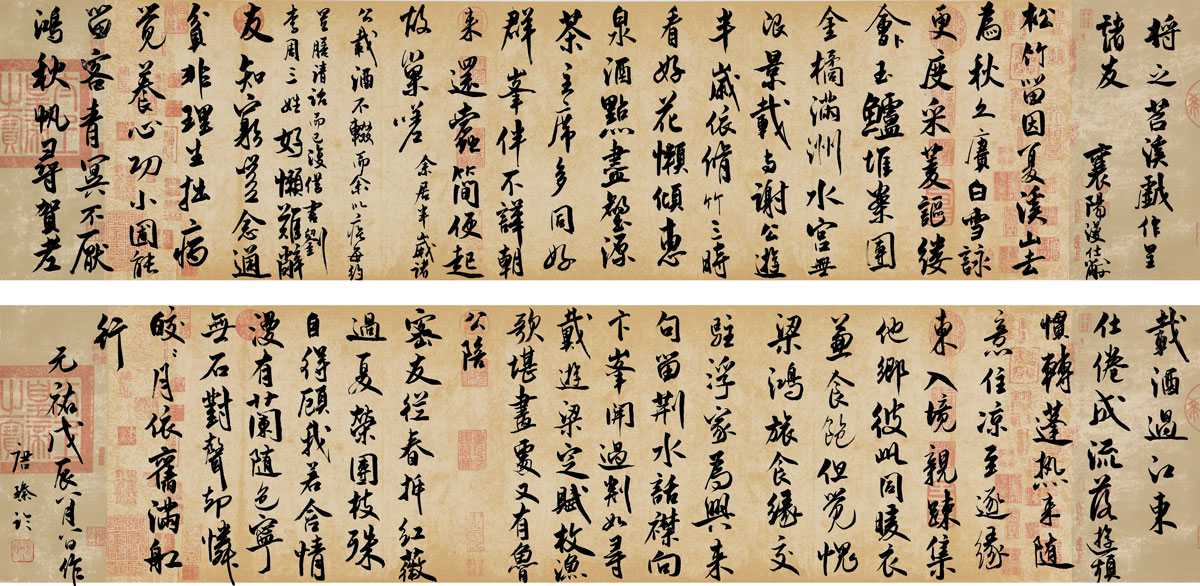 將之苕溪戲作呈
諸友 襄陽漫仕黻
松竹留因夏溪山去
為秋久賡白雪詠
更度采菱謳縷
鱠玉鱸堆案團
金橘滿洲水宮無
限景載与謝公遊
半歲依脩竹三時
看好花懶傾惠
泉酒點盡壑源
茶主席多同好
群峯伴不譁朝
來還蠹簡便起
故巢嗟 余居半歲諸
公載酒不輟而余以疾每約
置膳清話而已復借書劉
李周三姓 好懶難辭
友知窮豈念通
貧非理生拙病
覺養心功小圃能
留客青冥不厭
鴻秋帆尋賀老
載酒過江東
仕倦成流落遊頻
慣轉蓬熱來隨
意住涼至逐緣
東入境親疎集
他鄉彼此同暖衣
兼食飽但覺愧
梁鴻旅食緣交
駐浮家為興來
句留荊水話襟向
卞峯開過剡如尋
戴遊梁定賦枚漁
歌堪畫處又有魯
公陪
密友從春拆紅薇
過夏榮團枝殊
自得顧我若含情
漫有蘭隨色寧
無石對聲却憐
皎々月依舊滿舡
行
元祐戊辰八月八日作